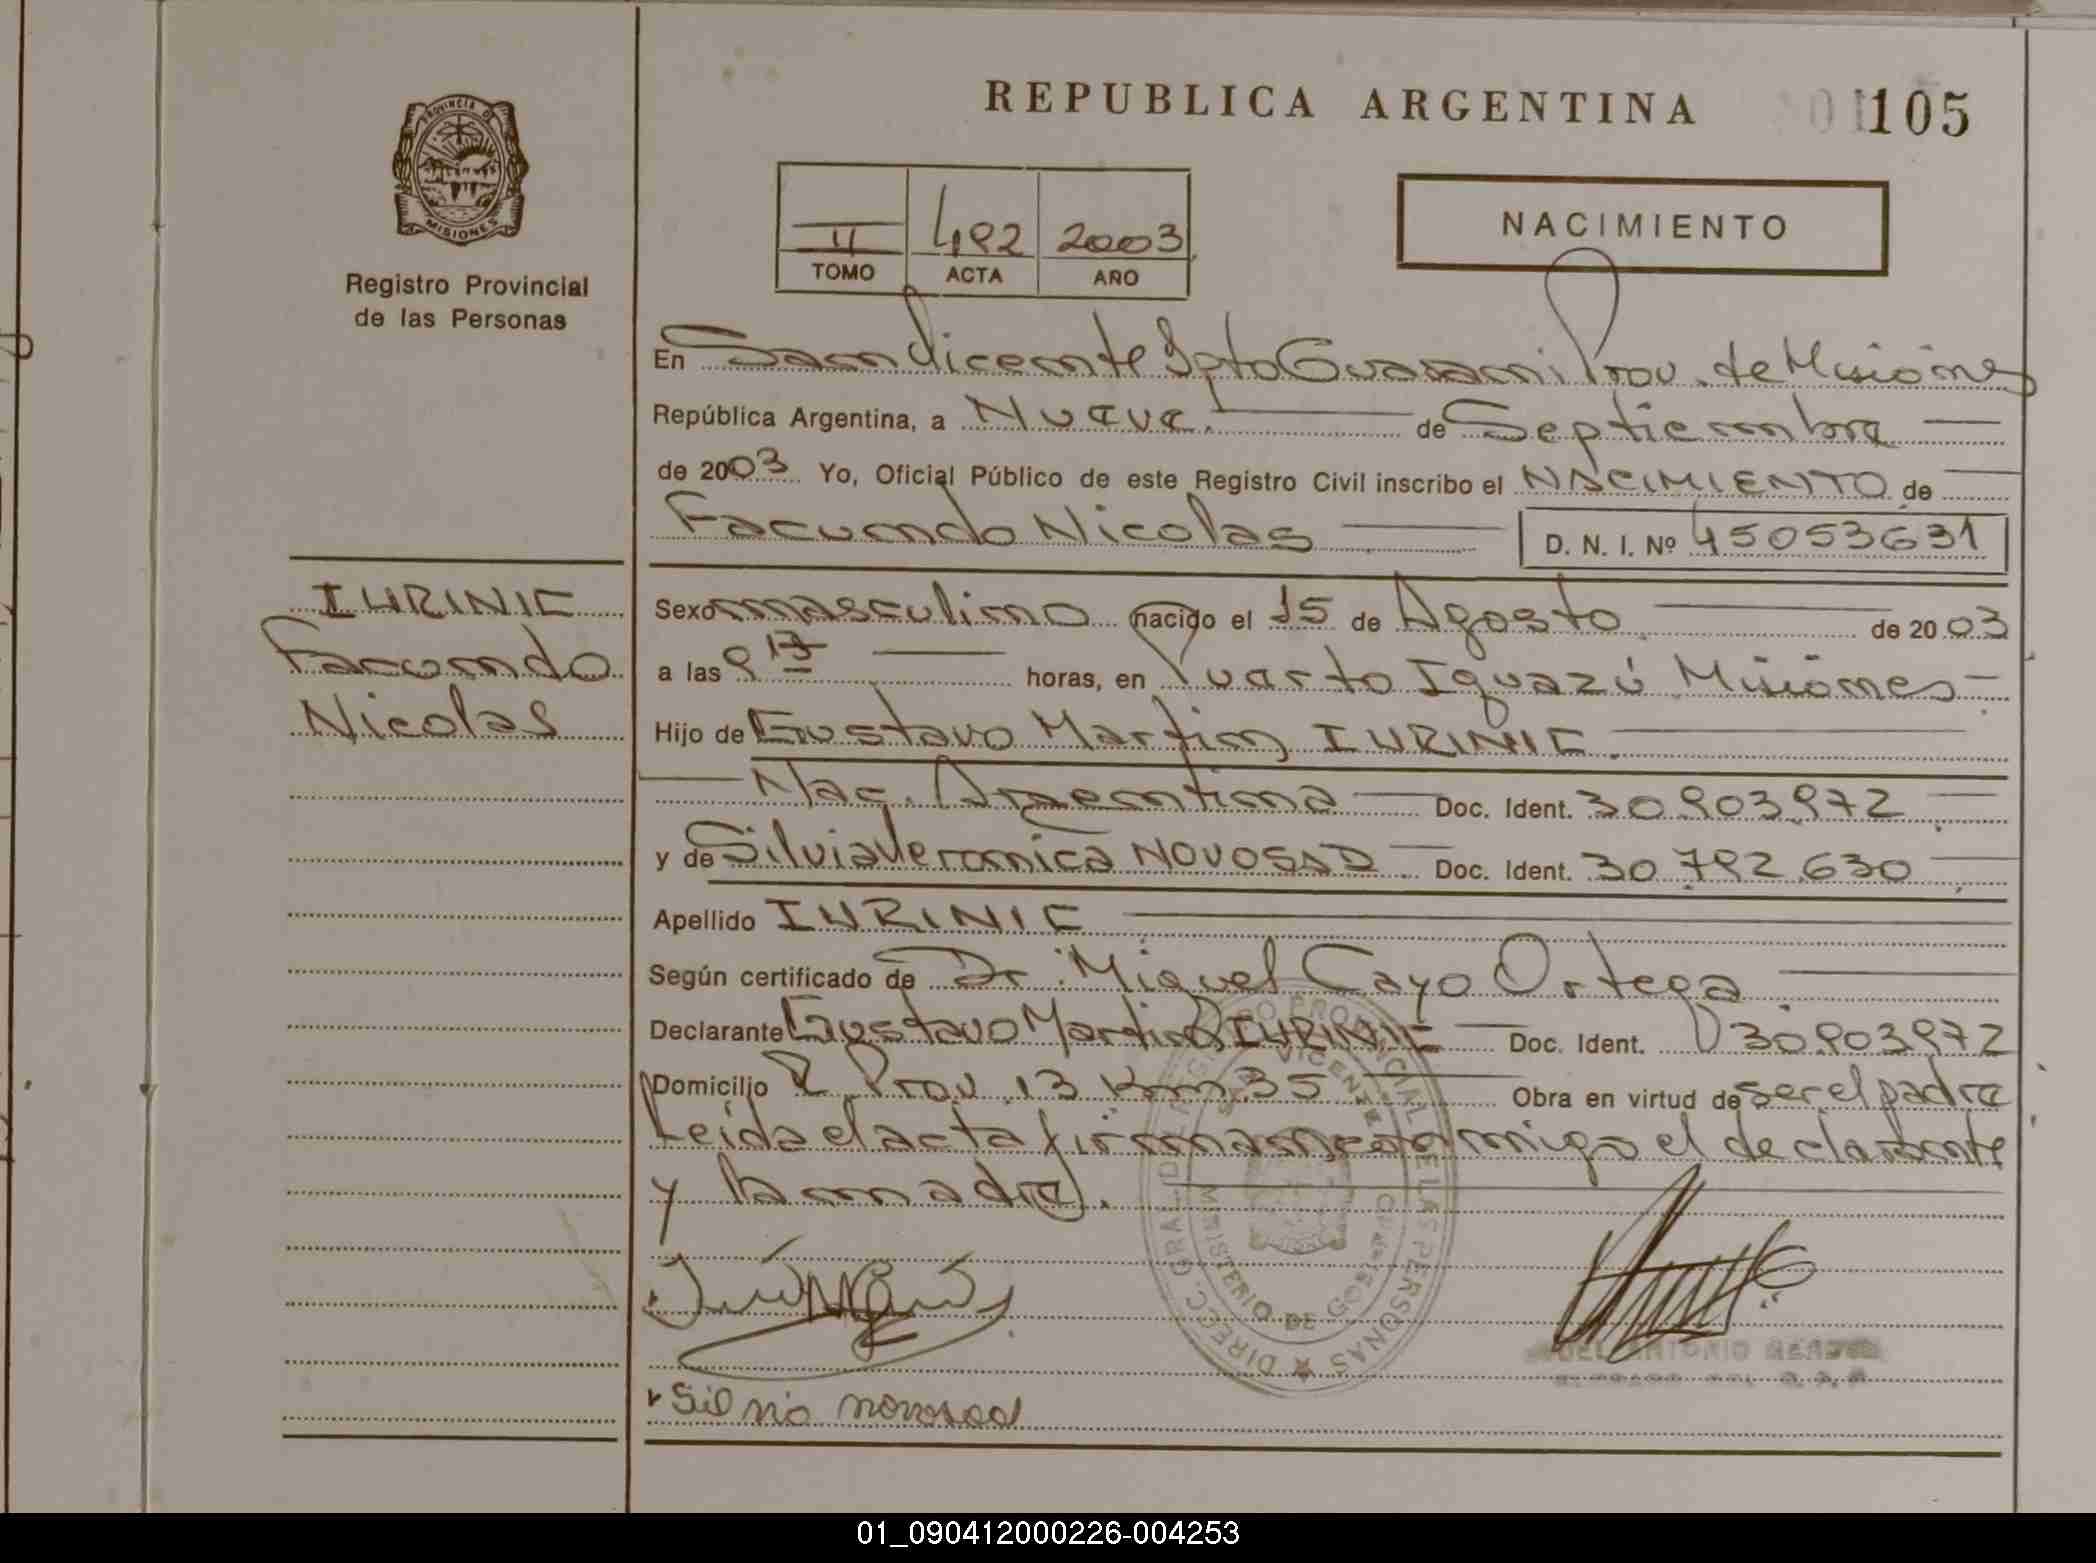 REPUBLICA ARGENTINA
105
PROVINCIA DE
MISIONES
Registro Provincial
de las Personas
II 492 2003
TOMO ACTA AÑO
NACIMIENTO
En San Vicente Dpto Guarani Prov. de Misiones
República Argentina, a Nueve. de Septiembre
de 2003 Yo, Oficial Público de este Registro Civil inscribo el NACIMIENTO de
Facundo Nicolas D. N. I. Nº 45053631
IURINIC
Facundo
Nicolas
Sexo masculino nacido el 15 de Agosto de 2003
a las 9 17 horas, en Puerto Iguazú Misiones
Hijo de Gustavo Martin IURINIC
Nac. Argentina Doc. Ident. 30.903.972
y de Silvia Veronica NOVOSAD Doc. Ident. 30.792.630
Apellido IURINIC
Según certificado de Dr. Miguel Cayo Ortega
Declarante Gustavo Martin IURINIC Doc. Ident. 30.903.972
Domicilio R. Prov. 13 Km 35 Obra en virtud de ser el padre
Leida el acta firman conmigo el declarante
y la madre.
DIRECC. GRAL. DEL REGISTRO PROVINCIAL DE LAS PERSONAS
SAN VICENTE
MINISTERIO DE GOBIERNO
ANTONIO
Silvia novosad
01_090412000226-004253